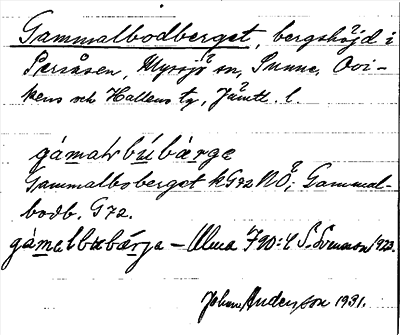 Gammalbodberget, bergshöjd i
Persåsen, Myssjö sn, Sunne, Ovi-
kens och Hallens tg, Jämtl. l.
gámaḷr bú̱ bà̱rge
Gammalboberget kG72 NÖ; Gammal-
bodb. G72.
gámalbubárja – Ulma 790:4 S. Svensson 1923.
Johan Anderzson 1931.